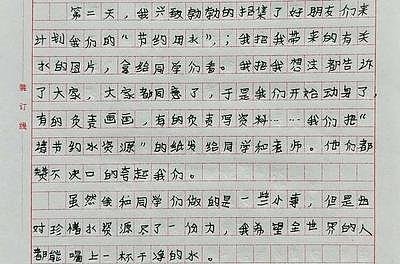 第二天，我兴致勃勃的招集了好朋友们来
计划我们的“节约用水”，；我把我带来的有关
水的图片，拿给同学们看。我把我想法都告诉
了大家，大家都同意了，于是我们开始动身了，
有的负责画画，有的负责写资料……我们把“
请节约水资源”的纸发给同学和老师。他们都
赞不决口的夸起我们。
虽然我和同学们做的是一些小事，但是也
对珍惜水资源尽了一份力，我希望全世界的人
都能喝上一杯干净的水。
装订线